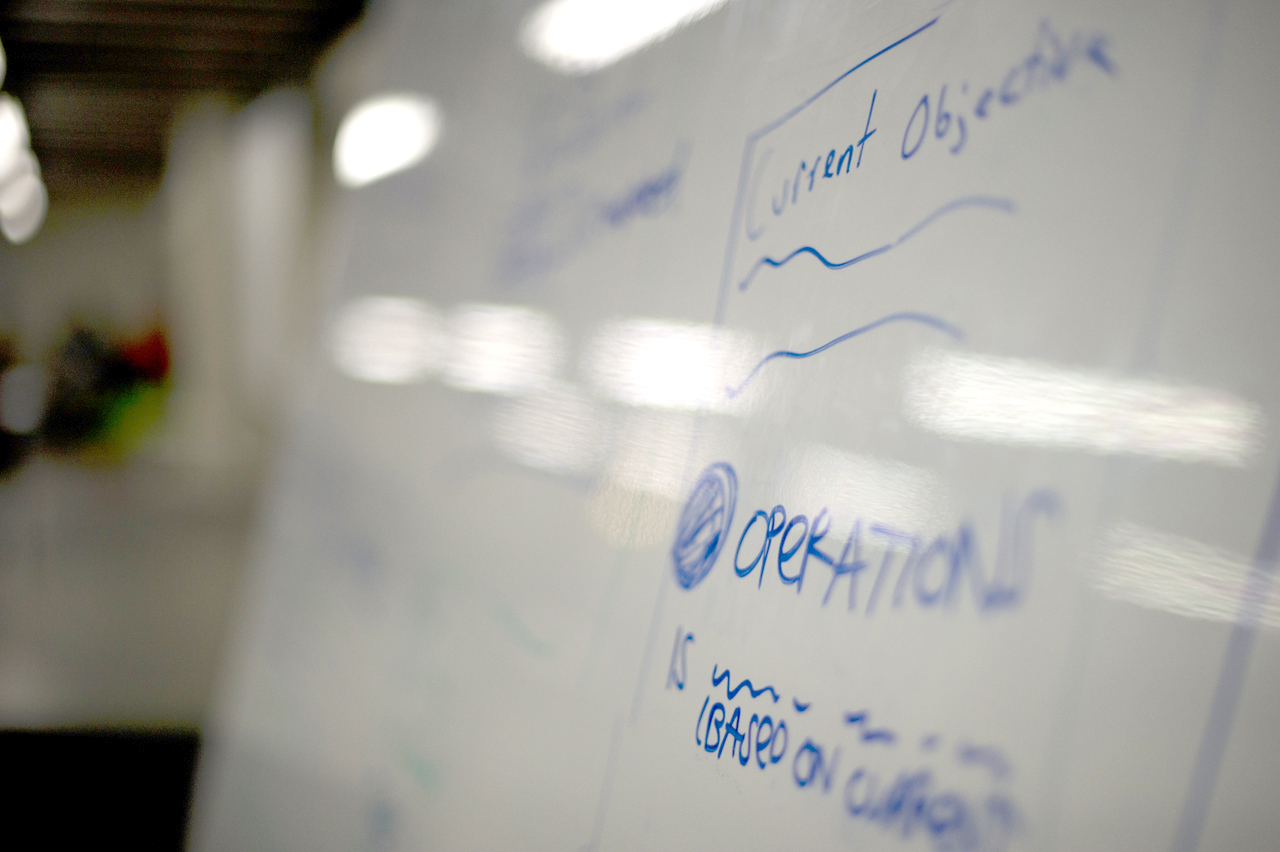 Current Objective
OPERATIONS
IS
(BASED ON CURRENT